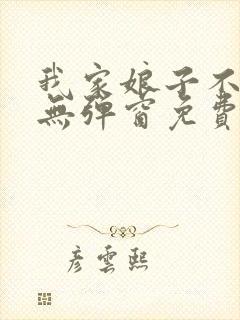 我家娘子不
無彈窗免費
彥雲熙